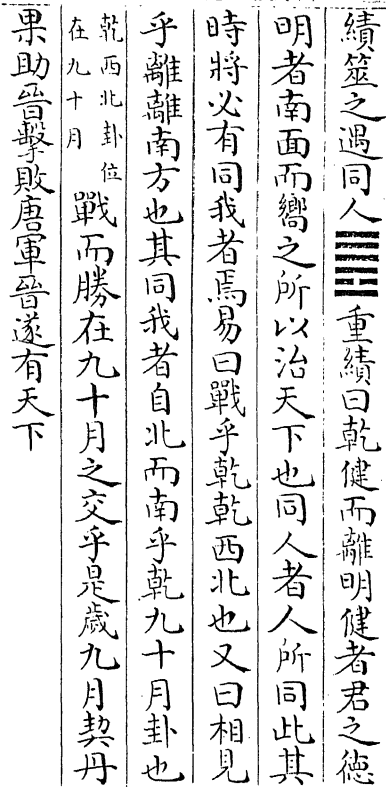 績筮之遇同人䷌重績曰乾健而離明健者君之德
明者南面而嚮之所以治天下也同人者人所同此其
時將必有同我者焉易曰戰乎乾乾西北也又曰相見
乎離離南方也其同我者自北而南乎乾九十月卦也
乾西北卦位
在九十月
戰而勝在九十月之交乎是歲九月契丹
果助晉擊敗唐軍晉遂有天下